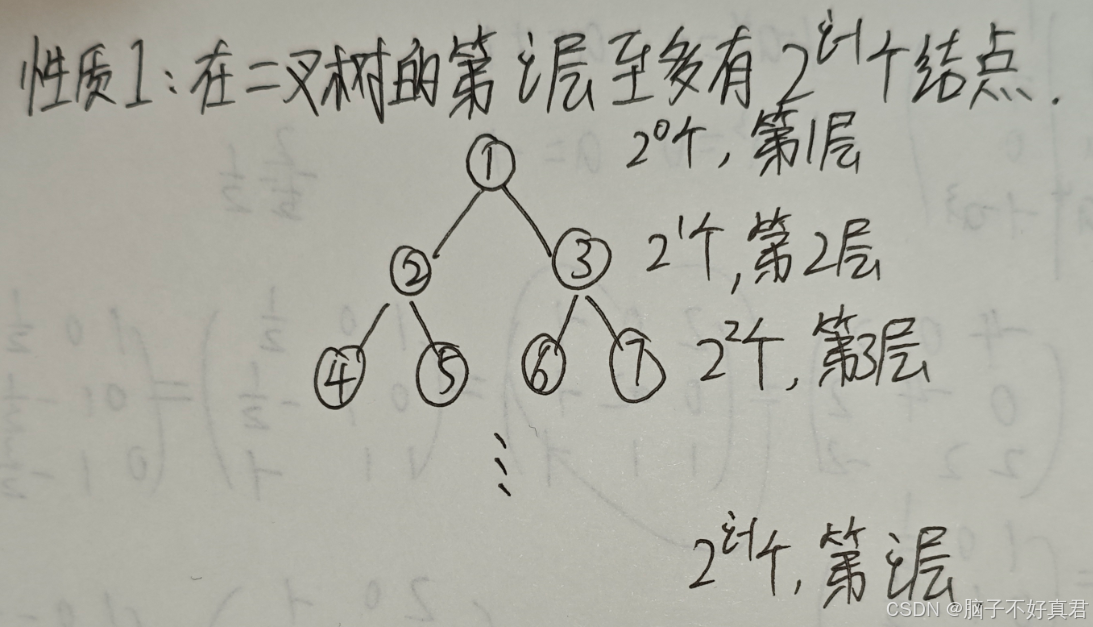 性质1:在二叉树的第i层至多有2^{i-1}个结点.
① 2^0个,第1层
② ③ 2^1个,第2层
④ ⑤ ⑥ ⑦ 2^2个,第3层
⋮
2^{i-1}个,第i层
CSDN @脑子不好真君